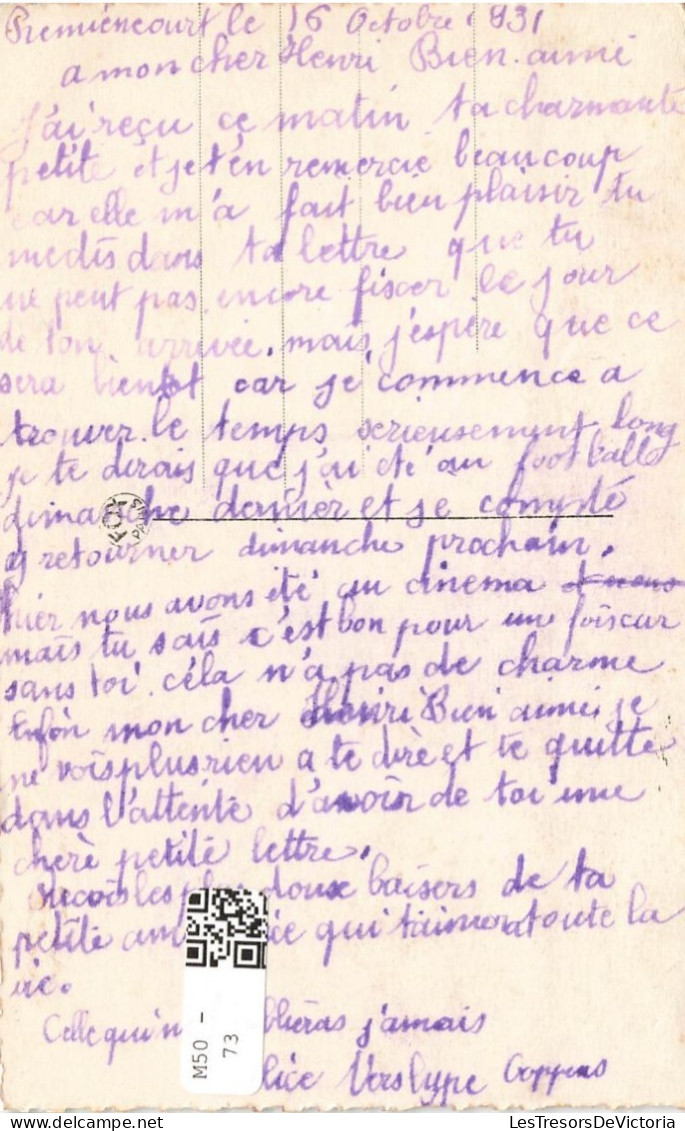 le 16 Octobre 1931
a mon cher Henri Bien aimé
J'ai reçu ce matin ta charmante
petite et je t'en remercie beaucoup
car elle m'a fait bien plaisir tu
me dis dans ta lettre que tu
ne peut pas encore fixer le jour
de ton arrivée, mais j'espère que ce
sera bientot car je commence a
trouver le temps serieusement long
je te dirais que j'ai eté au football
dimanche dernièr et je compte
y retourner dimanche prochain,
hier nous avons été au cinema et nous
mais tu sais c'est bon pour un
sans toi cela n'a pas de charme
Enfin mon cher Henri Bien aimé, je
ne vois plus rien a te dire et te quitte
dans l'attente d'avoir de toi une
chère petite lettre.
recois les plus doux baisers de ta
petite qui t'aimera toute la
vie.
Celle qui j'amais
Verslype Coppens
FOX
PARIS
M50 -
73
LesTresorsDeVictoria
LesTresorsDeVictoria.com